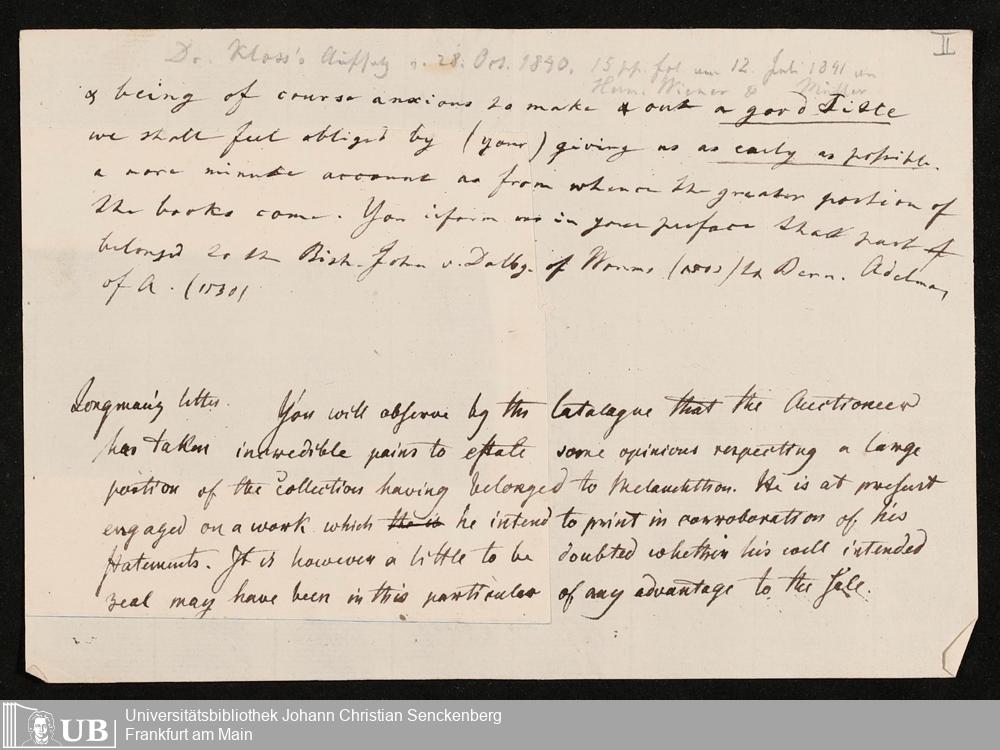 II
Dr. Kloss's Aufsatz v. 28. Oct. 1840. 15 pp. fol am 12. Juli 1841 an
Herrn & Müller
& being of course anxious to make & out a good Title
we shall feel obliged by (your) giving us as early as possible.
a more minute account as from whence the greater portion of
the books come. You inform us in your preface that part of
belonged to the Bish. John v. Dalbg. of Worms (1503) to Bern. Adelman
of A. (1530)
Longman's letter. You will observe by the Catalague that the Auctioneer
has taken incredible pains to some opinions respecting a large
portion of the Collection having belonged to Melanchthon. He is at present
engaged on a work which the is he intend to print in corroboration of his
statements. It is however a little to be doubted whether his well intended
zeal may have been in this particular of any advantage to the Sale.
UB
Universitätsbibliothek Johann Christian Senckenberg
Frankfurt am Main